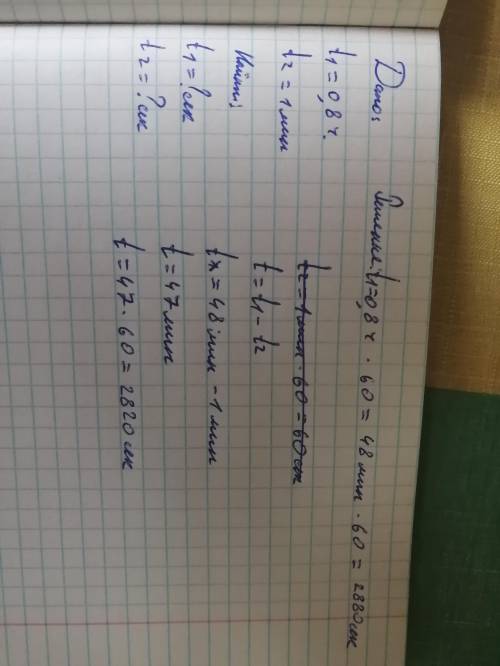 Дано:
t₁ = 0,8 ч.
t₂ = 1 мин
Найти:
t₁ = ? сек
t₂ = ? сек
Решение: t₁=0,8 ч · 60 = 48 мин · 60 = 2880 сек
t₂ = 1 мин · 60 = 60 сек
t = t₁ - t₂
tx = 48 мин - 1 мин
t = 47 мин
t = 47 · 60 = 2820 сек